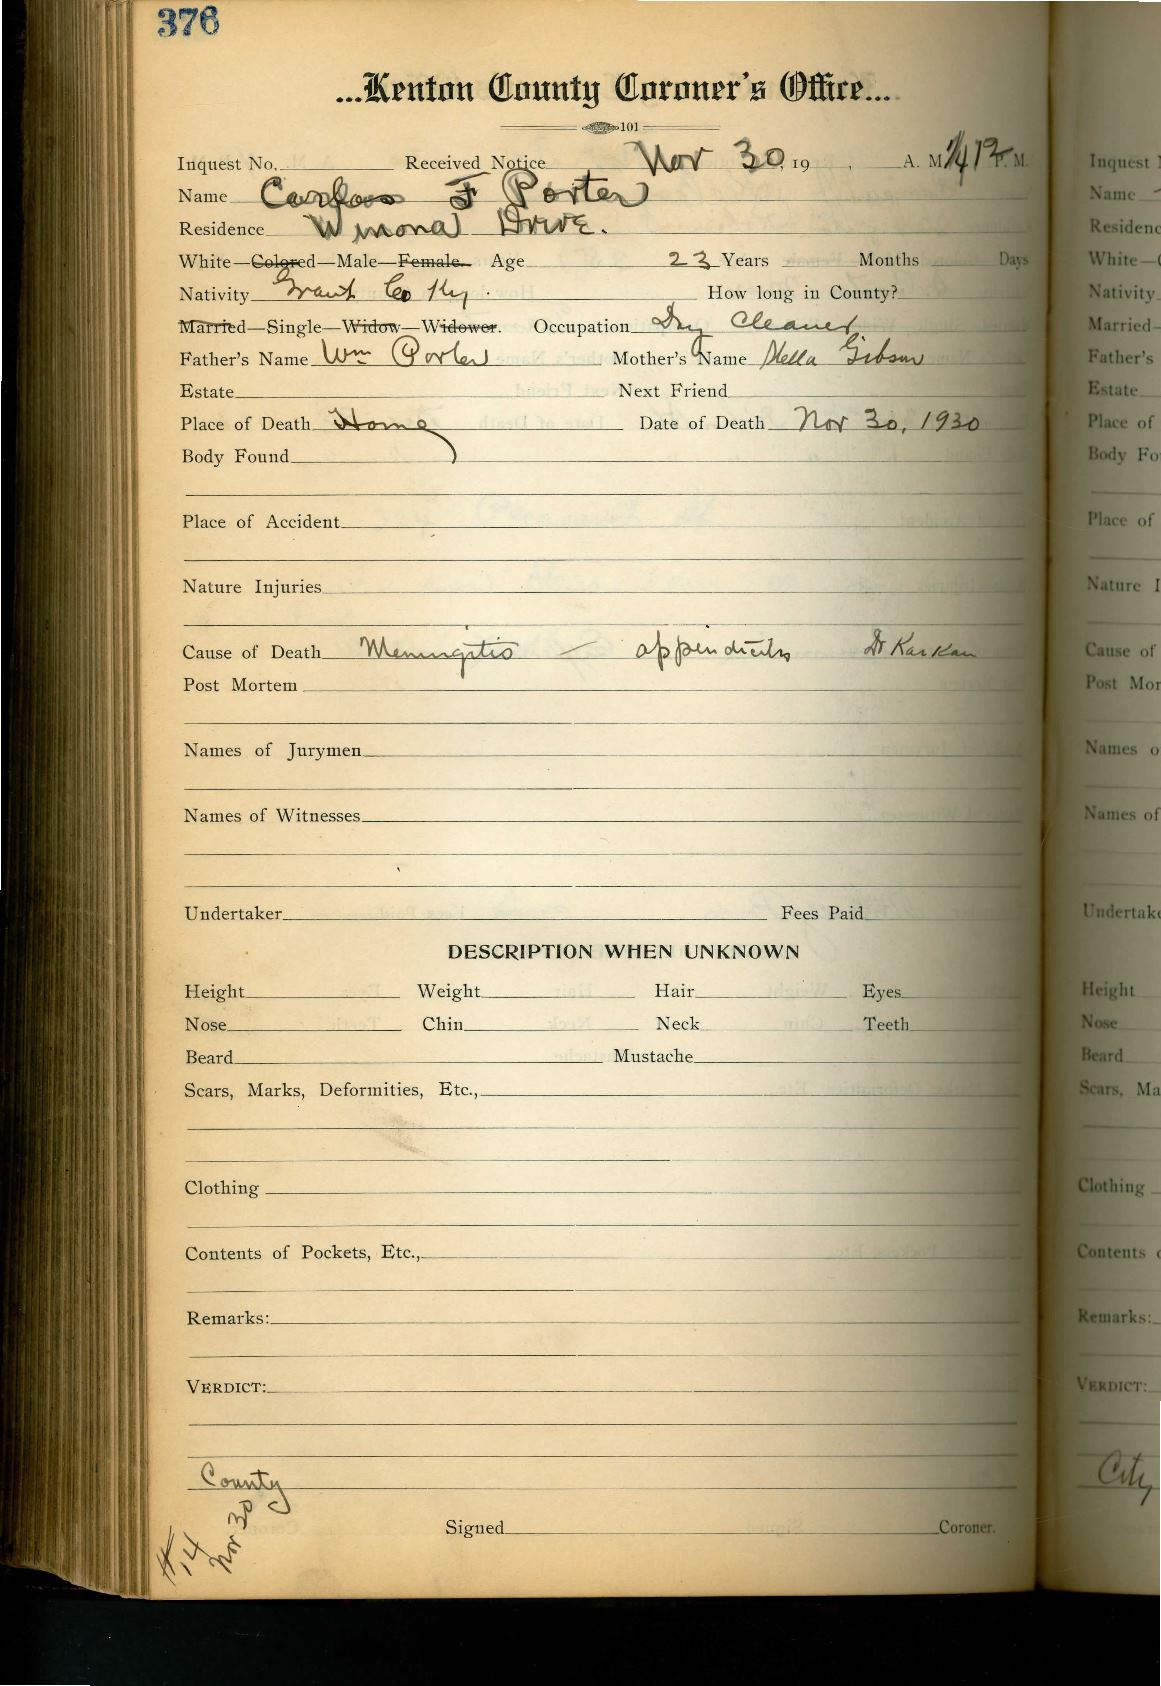 376
...Kenton County Coroner's Office...
101
Inquest No. Received Notice Nov 30, 19 , A. M. P. M.
Name F Porter
Residence Winona Drive.
White—Colored—Male—Female. Age 23 Years Months Days
Nativity Grant Co Ky. How long in County?
Married—Single—Widow—Widower. Occupation Dry Cleaner
Father's Name Wm Porter Mother's Name Stella Gibson
Estate Next Friend
Place of Death Home Date of Death Nov 30, 1930
Body Found
Place of Accident
Nature Injuries
Cause of Death Meningitis — appendicitis Dr
Post Mortem
Names of Jurymen
Names of Witnesses
Undertaker Fees Paid
DESCRIPTION WHEN UNKNOWN
Height Weight Hair Eyes
Nose Chin Neck Teeth
Beard Mustache
Scars, Marks, Deformities, Etc.,
Clothing
Contents of Pockets, Etc.,
Remarks:
VERDICT:
County
Signed Coroner.
#14
Nov 30
Inquest
Name
Residenc
White—
Nativity
Married—
Father's
Estate
Place of
Body Fo
Place of
Nature I
Cause of
Post Mor
Names o
Names of
Undertake
Height
Nose
Beard
Scars, Ma
Clothing
Contents
Remarks:
VERDICT:
City